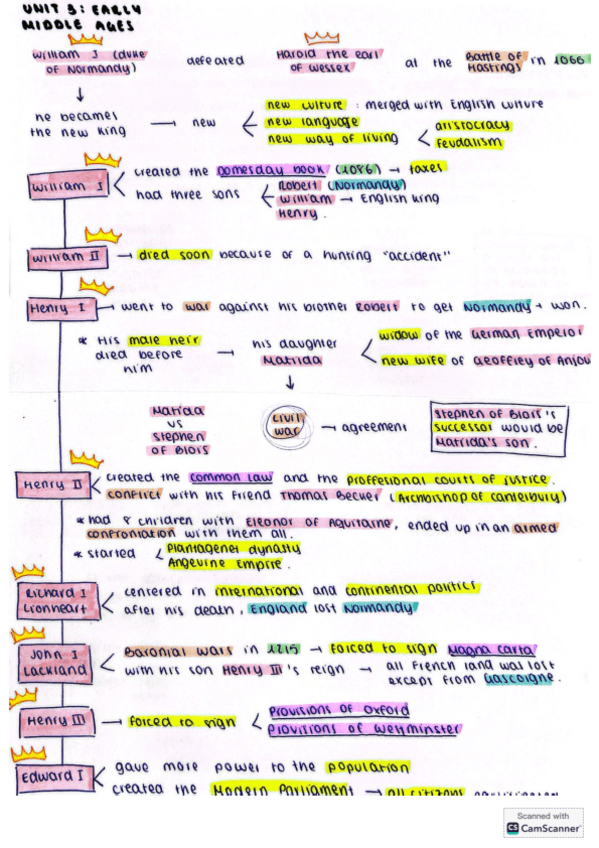 UNIT 3: EARLY
MIDDLE AGES
William I (duke of Normandy) defeated Harold the earl of Wessex at the Battle of Hastings in 1066
he becames the new king → new
new culture : merged with English culture
new language
new way of living
aristocracy
feudalism
William I
created the Domesday book (1086) → taxes
had three sons
Robert (Normandy)
William → English king
Henry.
William II → died soon because of a hunting "accident"
Henry I → went to war against his brother Robert to get Normandy + won.
* His male heir died before him → his daughter Matilda
widow of the German Emperor
new wife of Geoffrey of Anjou
Matilda vs Stephen of Blois
civil war → agreement
Stephen of Blois's successor would be Matilda's son.
Henry II
created the common law and the proffesional courts of justice.
conflict with his friend Thomas Becket (Archbishop of Canterbury)
* had 8 children with Eleonor of Aquitaine, ended up in an armed confrontation with them all.
* started
Plantagenet dynasty
Angevine Empire.
Richard I Lionheart
centered in international and continental politics
after his death, England lost Normandy
John I Lackland
Baronial wars in 1215 → forced to sign Magna carta
with his son Henry III's reign → all French land was lost except from Gascoigne.
Henry III → forced to sign
Provisions of Oxford
Provisions of Westminster
Edward I
gave more power to the population
created the Modern Parliament → all citizens
Scanned with
CS CamScanner